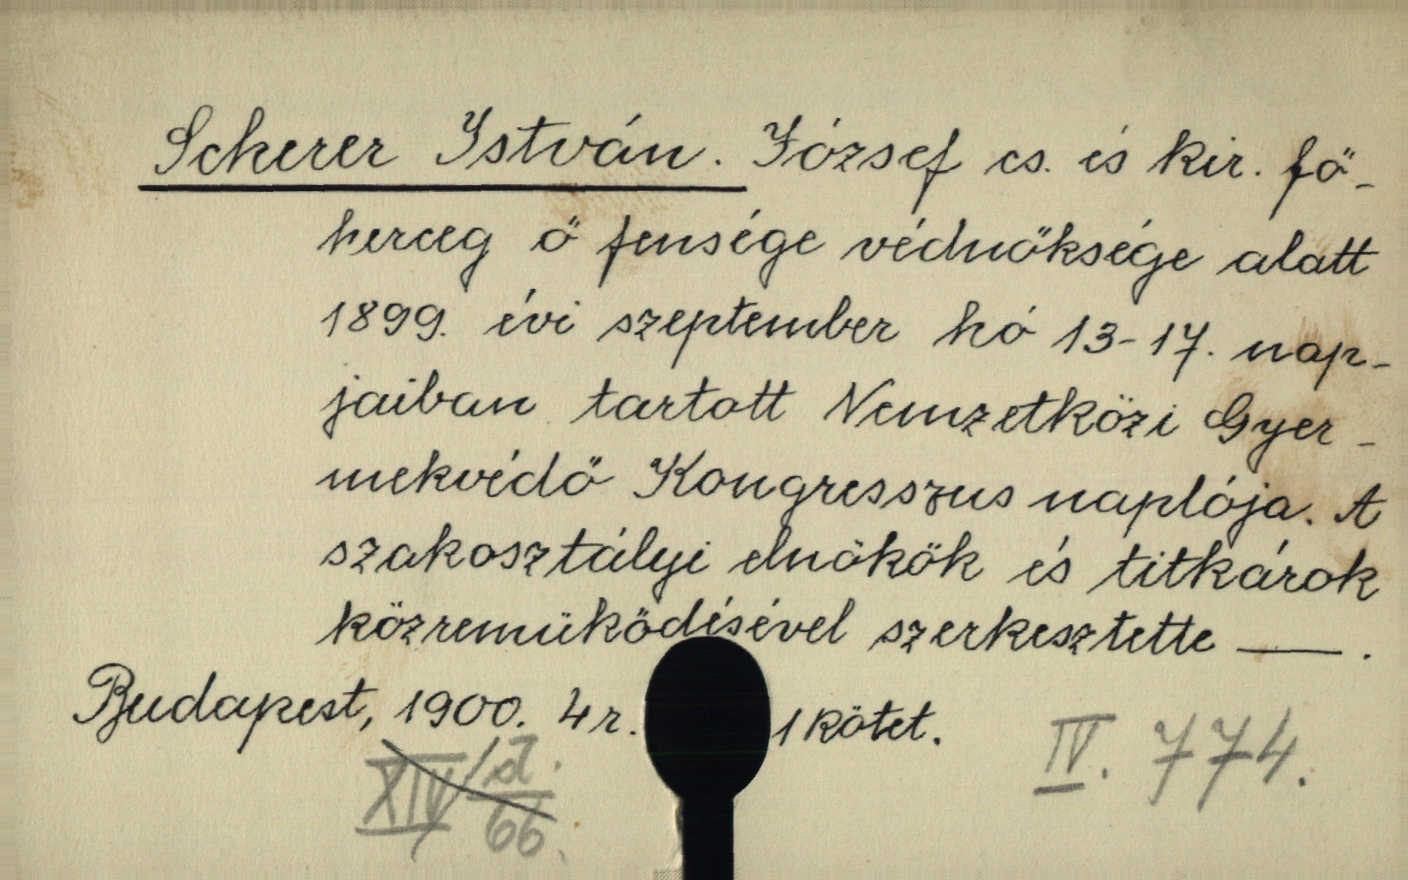 Scherer István. József cs. és kir. fő-
herceg ő fensége védnöksége alatt
1899. évi szeptember hó 13-17. nap-
jaiban tartott Nemzetközi Gyer-
mekvédő Kongresszus naplója. A
szakosztályi elnökök és titkárok
közremüködésével szerkesztette —.
Budapest, 1900. 4r. 1 kötet.
IV. 774.
XIV/d. 66.